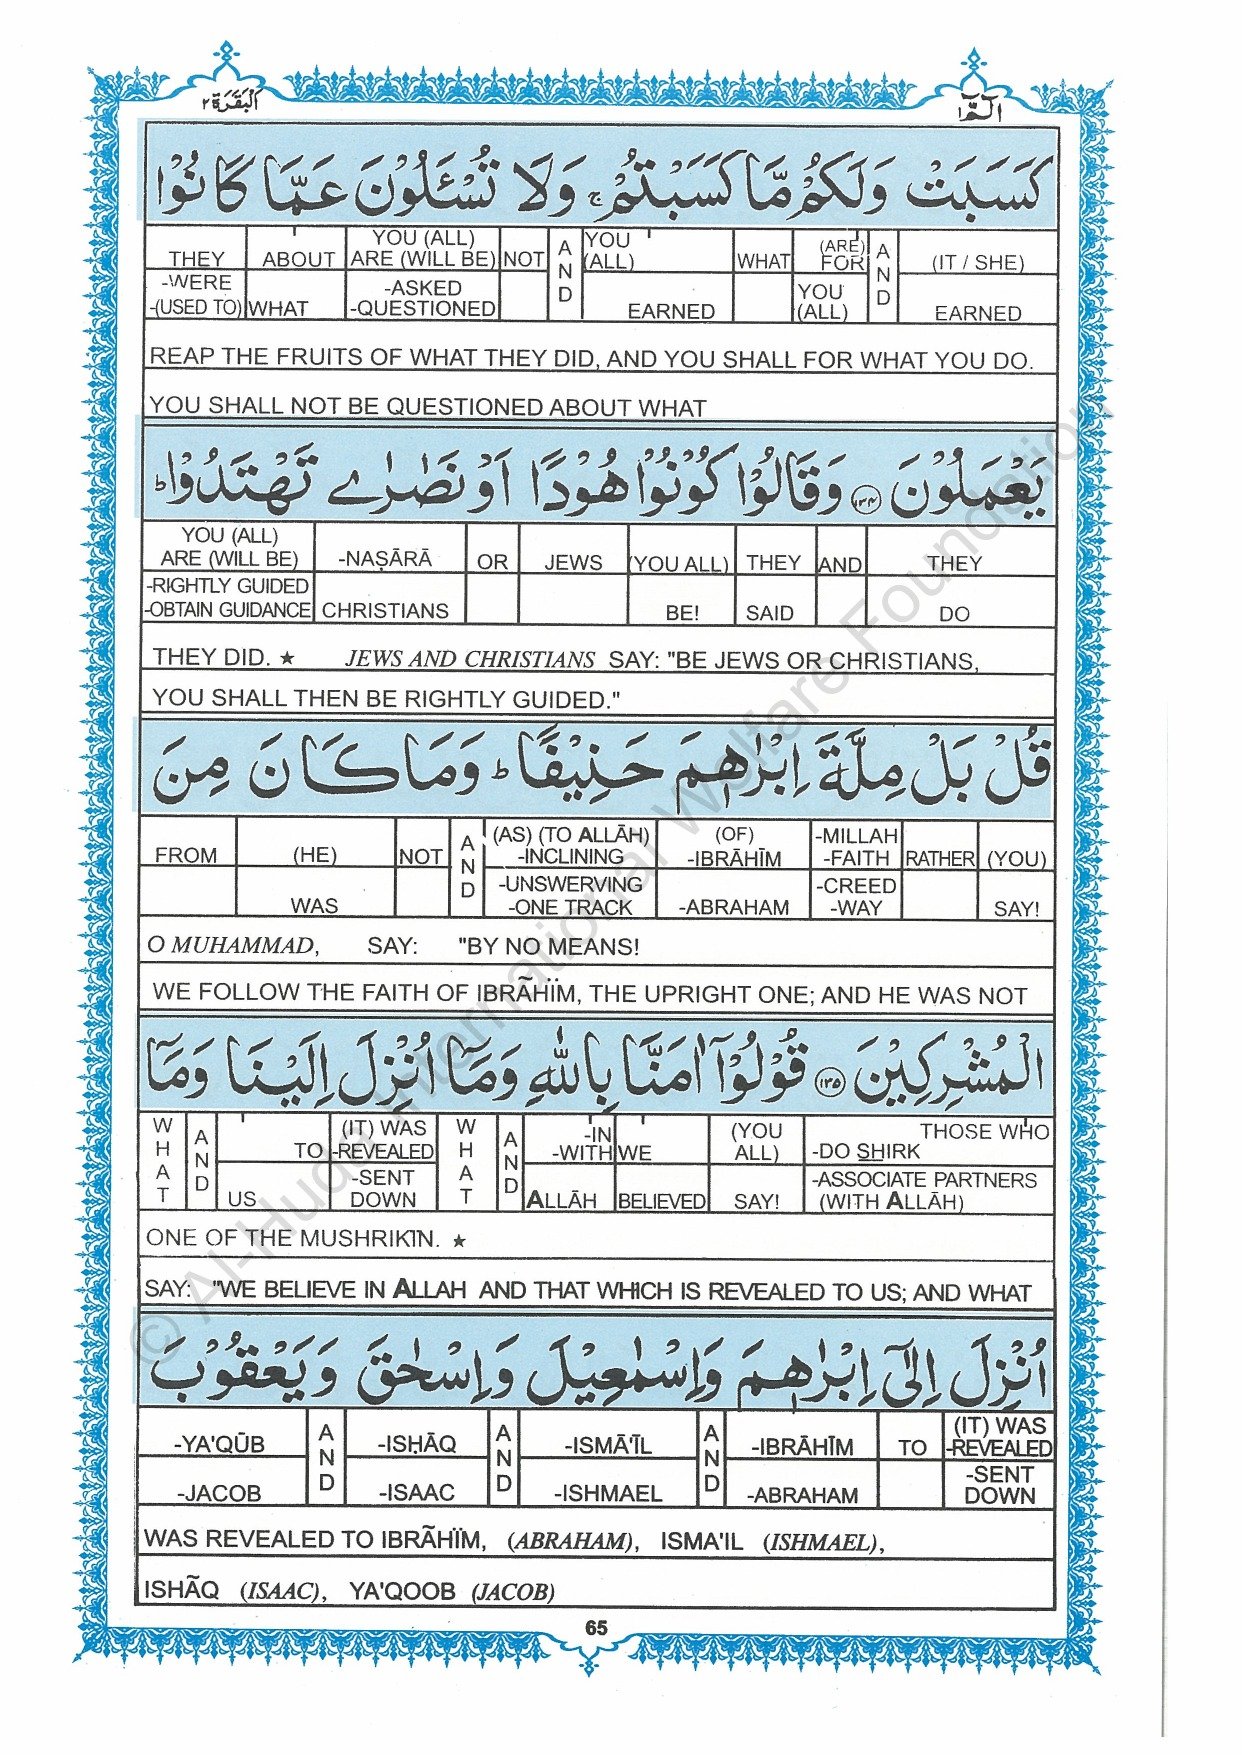 البقرة ٢
الٓمّٓ ١
كَسَبَتْ وَلَكُمْ مَّا كَسَبْتُمْ ۚ وَلَا تُسْـَٔلُوْنَ عَمَّا كَانُوْا
THEY ABOUT YOU (ALL) ARE (WILL BE) NOT AND YOU (ALL) WHAT (ARE) FOR AND (IT / SHE)
-WERE -(USED TO) WHAT -ASKED -QUESTIONED EARNED YOU (ALL) EARNED
REAP THE FRUITS OF WHAT THEY DID, AND YOU SHALL FOR WHAT YOU DO.
YOU SHALL NOT BE QUESTIONED ABOUT WHAT
يَعْمَلُوْنَ ﴿۱۳۴﴾ وَقَالُوْا كُوْنُوْا هُوْدًا اَوْ نَصٰرٰے تَهْتَدُوْا ؕ
YOU (ALL) ARE (WILL BE) -NAṢĀRĀ OR JEWS (YOU ALL) THEY AND THEY
-RIGHTLY GUIDED -OBTAIN GUIDANCE CHRISTIANS BE! SAID DO
THEY DID. ★ JEWS AND CHRISTIANS SAY: "BE JEWS OR CHRISTIANS,
YOU SHALL THEN BE RIGHTLY GUIDED."
قُلْ بَلْ مِلَّةَ اِبْرٰهٖمَ حَنِيْفًا ؕ وَمَا كَانَ مِنَ
FROM (HE) NOT AND (AS) (TO ALLĀH) -INCLINING (OF) -IBRĀHĪM -MILLAH -FAITH RATHER (YOU)
WAS -UNSWERVING -ONE TRACK -ABRAHAM -CREED -WAY SAY!
O MUHAMMAD, SAY: "BY NO MEANS!
WE FOLLOW THE FAITH OF IBRÃHÏM, THE UPRIGHT ONE; AND HE WAS NOT
الْمُشْرِكِيْنَ ﴿۱۳۵﴾ قُوْلُوْٓا اٰمَنَّا بِاللّٰهِ وَمَآ اُنْزِلَ اِلَيْنَا وَمَآ
WHAT AND TO (IT) WAS -REVEALED WHAT AND -IN -WITH WE (YOU ALL) THOSE WHO -DO SHIRK
US -SENT DOWN ALLĀH BELIEVED SAY! -ASSOCIATE PARTNERS (WITH ALLĀH)
ONE OF THE MUSHRIKĪN. ★
SAY: "WE BELIEVE IN ALLAH AND THAT WHICH IS REVEALED TO US; AND WHAT
اُنْزِلَ اِلٰٓى اِبْرٰهٖمَ وَاِسْمٰعِيْلَ وَاِسْحٰقَ وَيَعْقُوْبَ
-YA'QŪB AND -ISḤĀQ AND -ISMĀ'ĪL AND -IBRĀHĪM TO (IT) WAS -REVEALED
-JACOB -ISAAC -ISHMAEL -ABRAHAM -SENT DOWN
WAS REVEALED TO IBRÃHÏM, (ABRAHAM), ISMA'IL (ISHMAEL),
ISHÃQ (ISAAC), YA'QOOB (JACOB)
65
© Al-Huda International Welfare Foundation